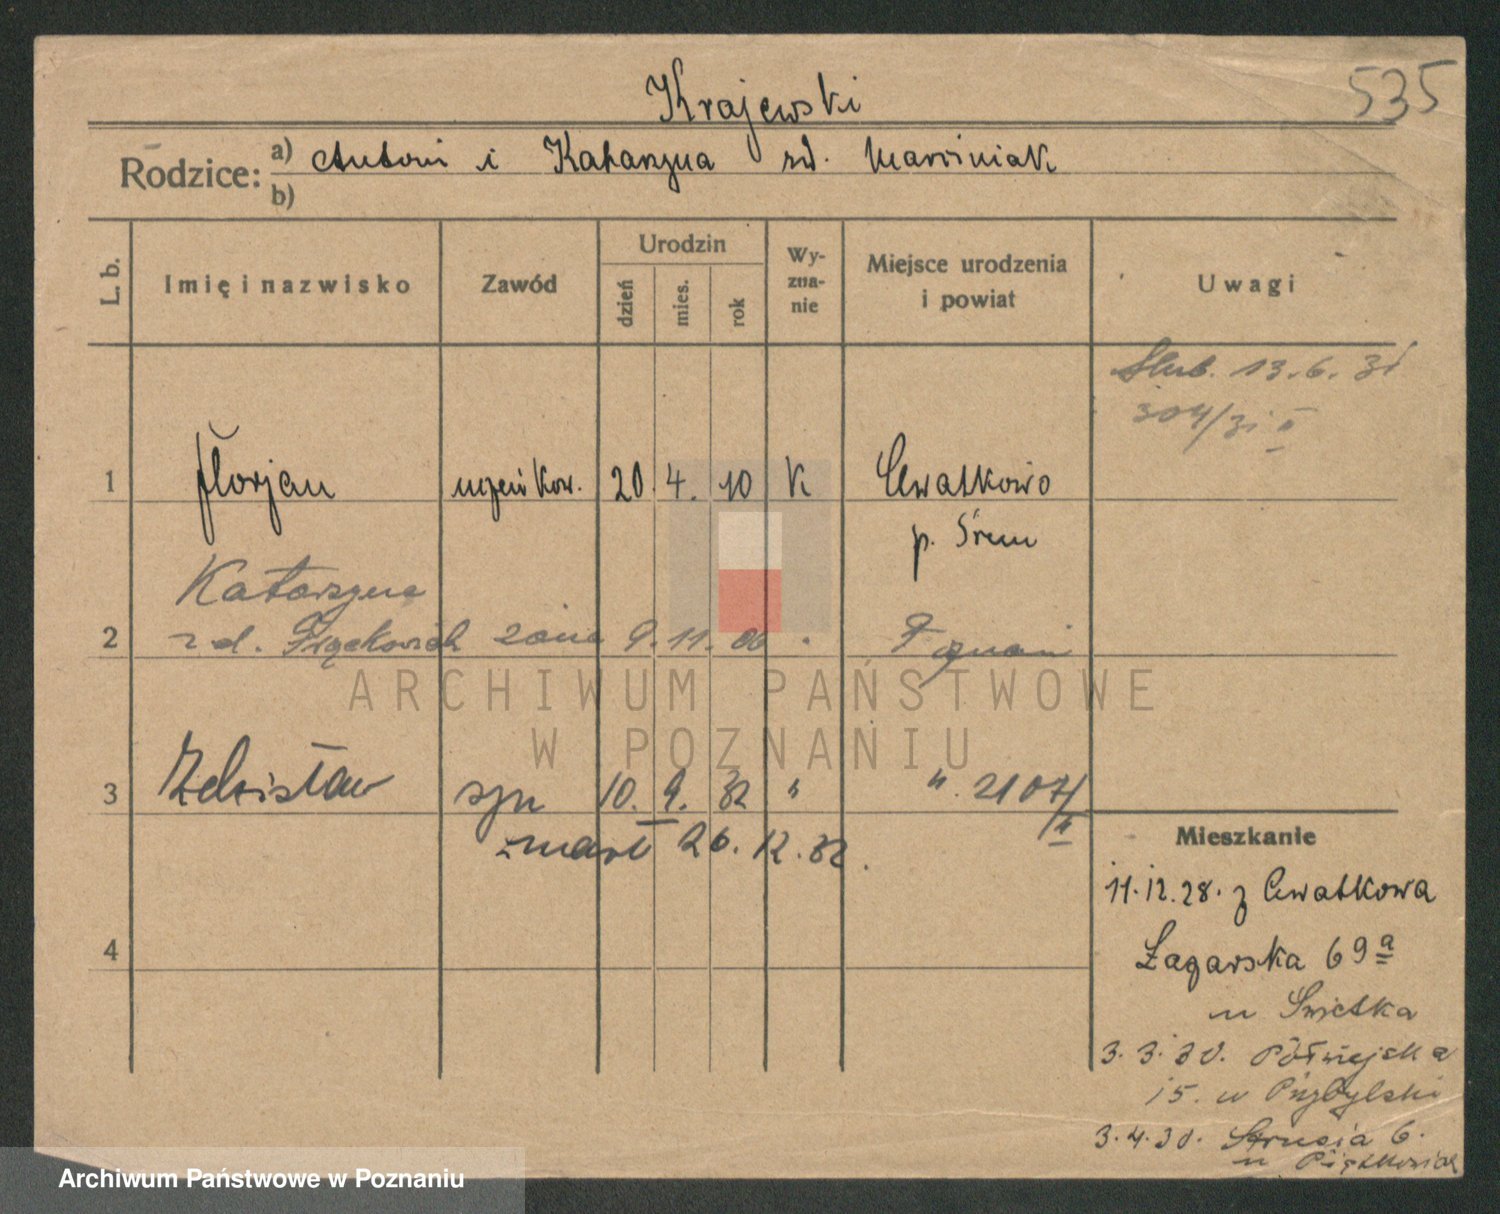 535
Krajewski
Rodzice: a) Antoni i Katarzyna zd. Marciniak
b)
L. b.
Imię i nazwisko
Zawód
Urodzin
dzień
mies.
rok
Wy-
zna-
nie
Miejsce urodzenia
i powiat
Uwagi
Ślub. 13.6.31
304/31 II
1 Florjan uczeń kow. 20. 4. 10 k Chwałkowo
p. Śrem
Katarzyna
2 zd. żona 9. 11. 06 Poznań
3 Zdzisław syn 10. 9. 32 " " 2107/
II
zmarł 26.12.32.
4
Mieszkanie
11.12.28. z Chwałkowa
Łagarska 69a
u Świetka
3.3.30. Półwiejska
15. u Przybylski
3.4.30. Strusia 6.
u
ARCHIWUM PAŃSTWOWE
W POZNANIU
Archiwum Państwowe w Poznaniu